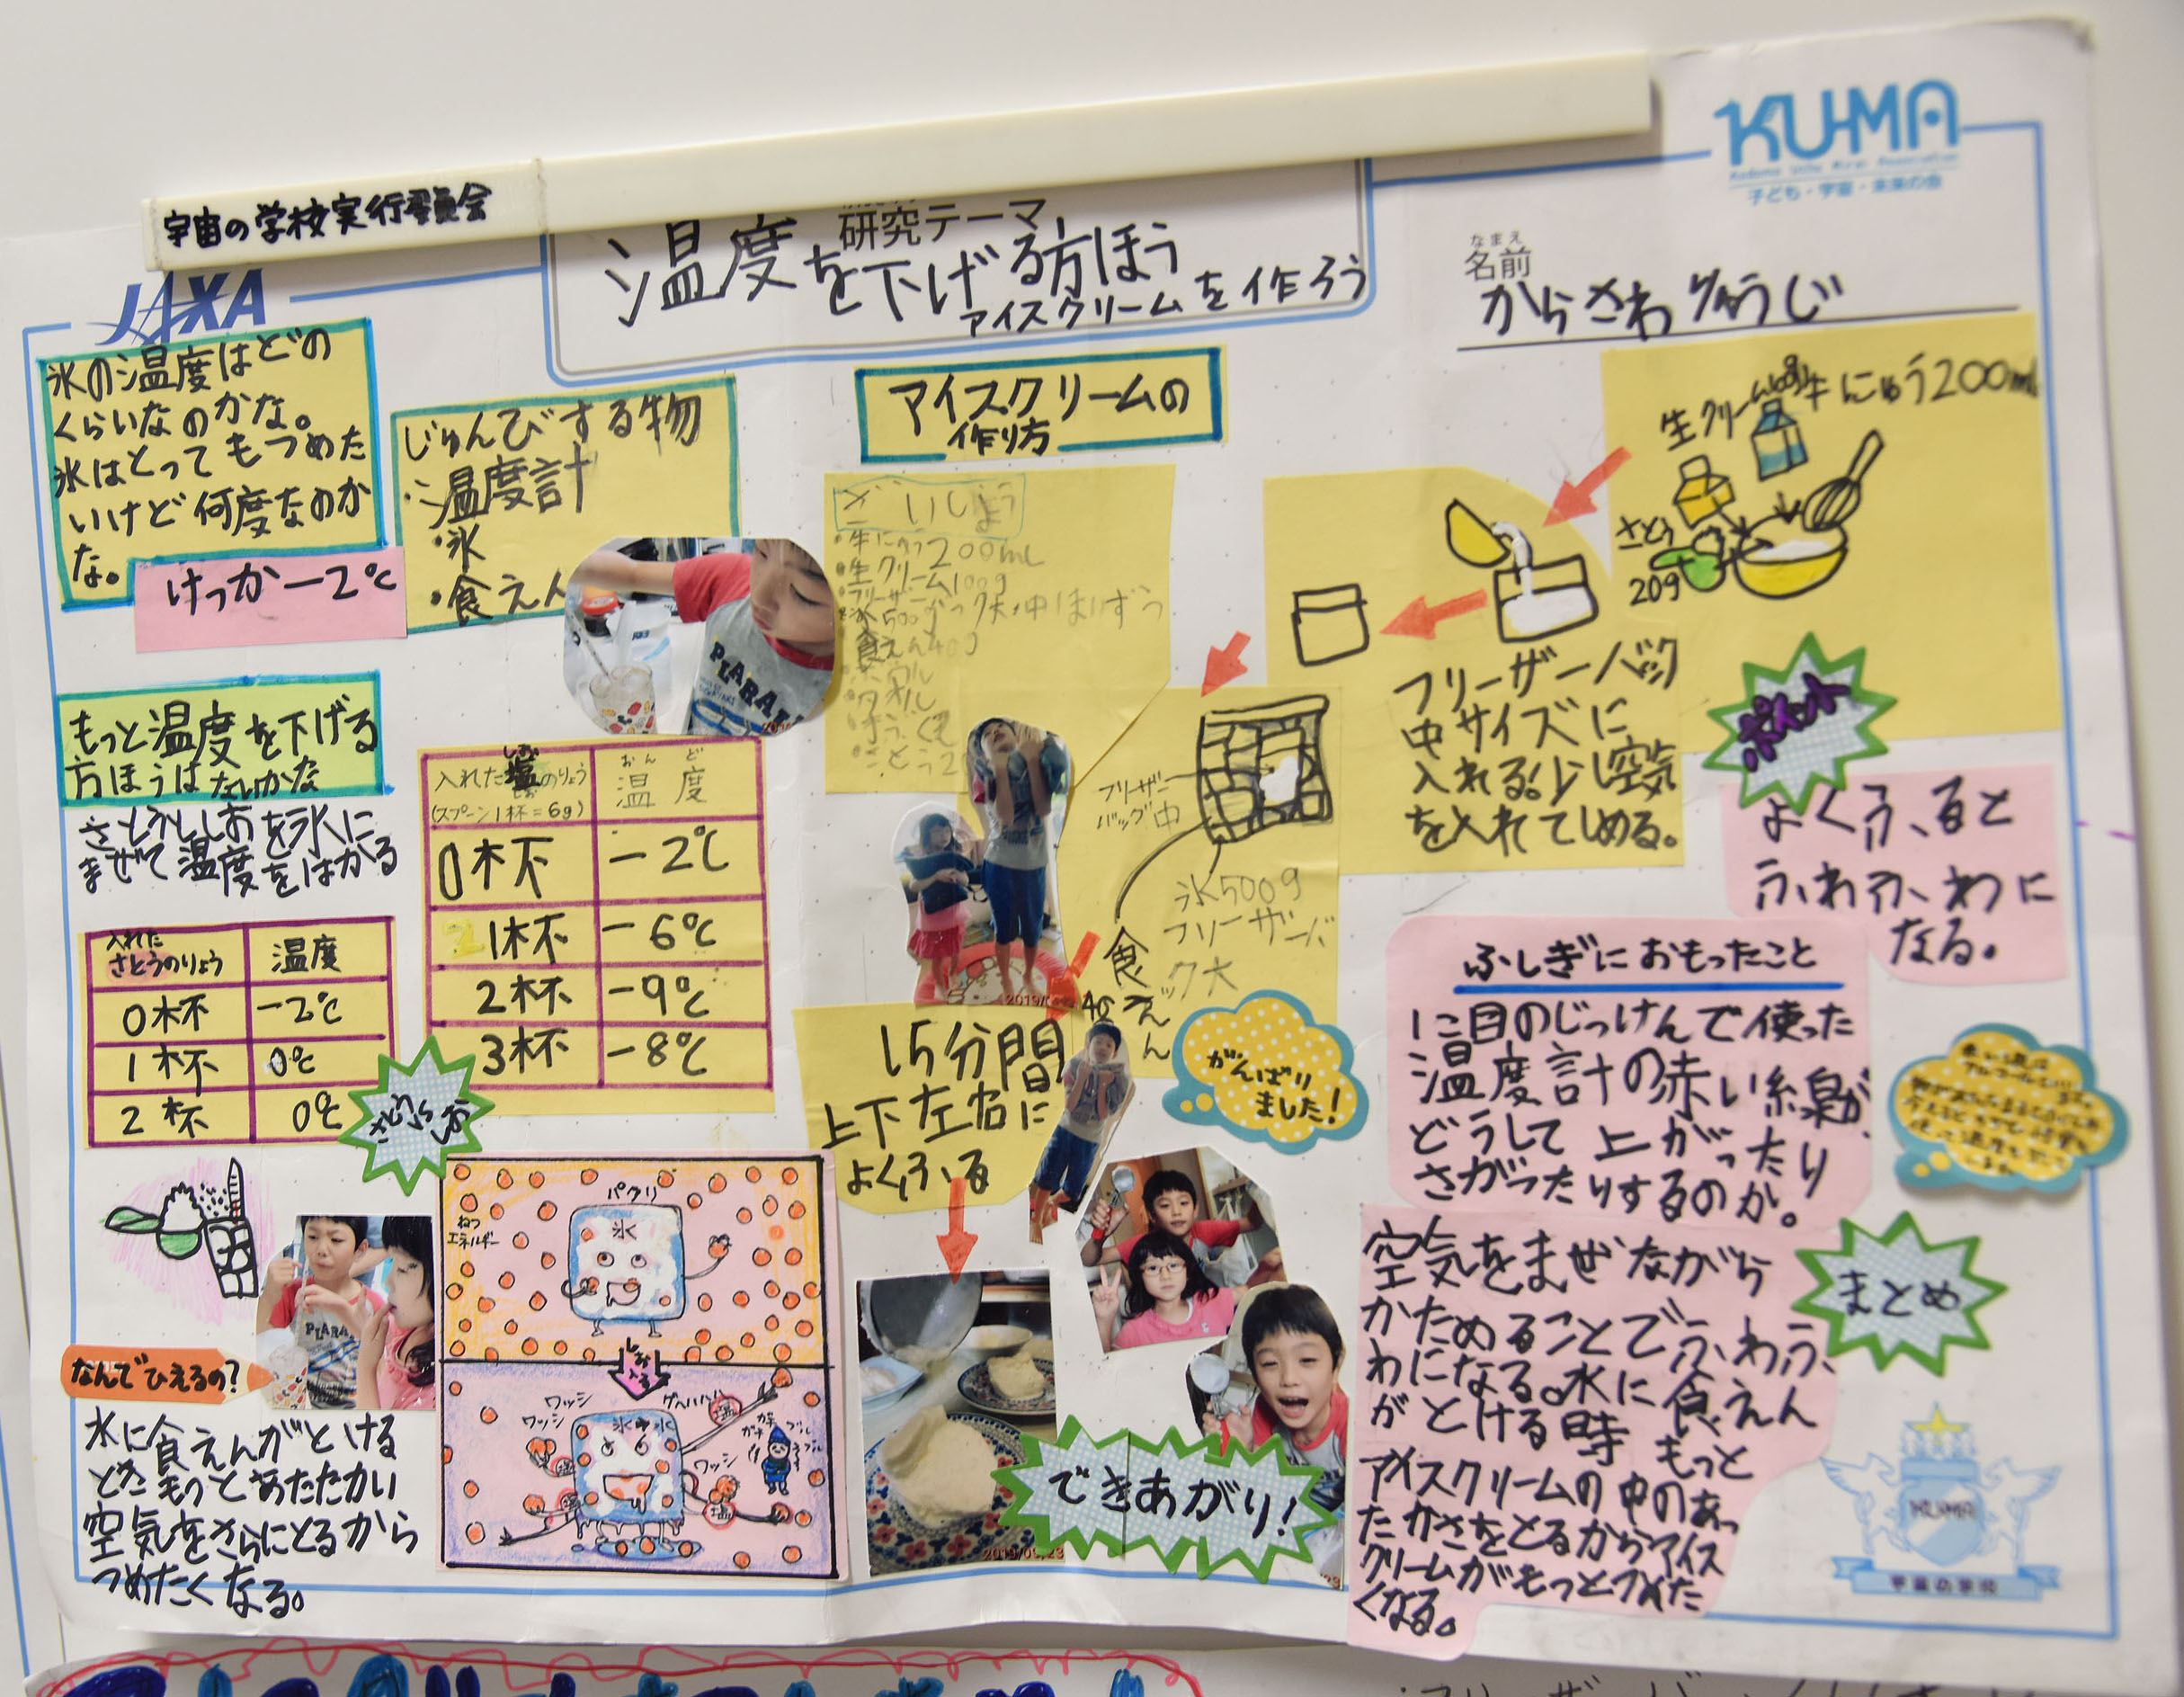 宇宙の学校実行委員会
JAXA
研究テーマ
温度を下げる方ほう
アイスクリームを作ろう
KU-MA
子ども・宇宙・未来の会
なまえ
名前
からさわ りゅうじ
氷の温度はどの
くらいなのかな。
氷はとってもつめた
いけど何度なのか
な。
けっか−2℃
じゅんびする物
・温度計
・氷
・食えん
もっと温度を下げる
方ほうはないかな
さとうとしおを氷に
まぜて温度をはかる
入れた
さとうのりょう
温度
0杯
−2℃
1杯
0℃
2杯
0℃
入れた塩のりょう
(スプーン1杯=6g)
おんど
温度
0杯
−2℃
1杯
−6℃
2杯
−9℃
3杯
−8℃
さとうvsしお
PLARA
なんでひえるの?
氷に食えんがとける
ときもっとあたたかい
空気をさらにとるから
つめたくなる。
パクリ
ねつ
エネルギー
氷
ワッシ
ワッシ
グハハハ
塩
ワッシ
塩
アイスクリームの
作り方
・牛にゅう200mL
・生クリーム100g
食えん40g
生クリーム100g
牛にゅう200mL
さとう
20g
フリーザーバック
中サイズに
入れる!少し空気
を入れてしめる。
ポイント
よくふると
ふわふわに
なる。
フリーザー
バッグ中
氷500g
フリーザーバ
ック大
食えん
40g
15分間
上下左右に
よくふる
がんばり
ました!
できあがり!
ふしぎにおもったこと
1こ目のじっけんで使った
温度計の赤い線が、
どうして上がったり
さがったりするのか。
まとめ
空気をまぜながら
かためることでふわふ
わになる。氷に食えん
がとける時もっと
アイスクリームの中のあっ
たかさをとるからアイス
クリームがもっとつめた
くなる。
KU-MA
宇宙の学校